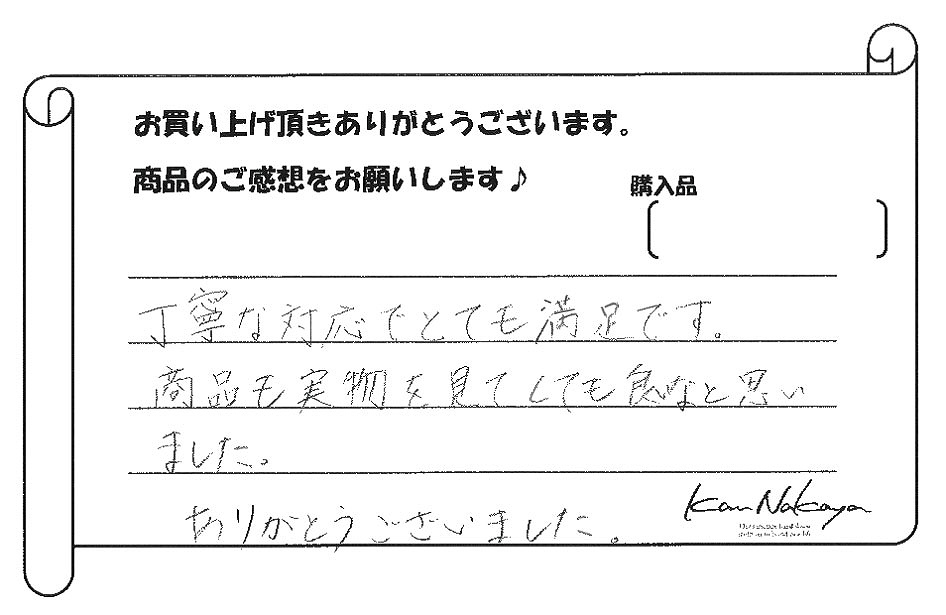 お買い上げ頂きありがとうございます。
商品のご感想をお願いします♪
購入品
丁寧な対応でとても満足です。
商品も実物を見てとても良なと思い
ました。
ありがとうございました。
Kan Nakaya